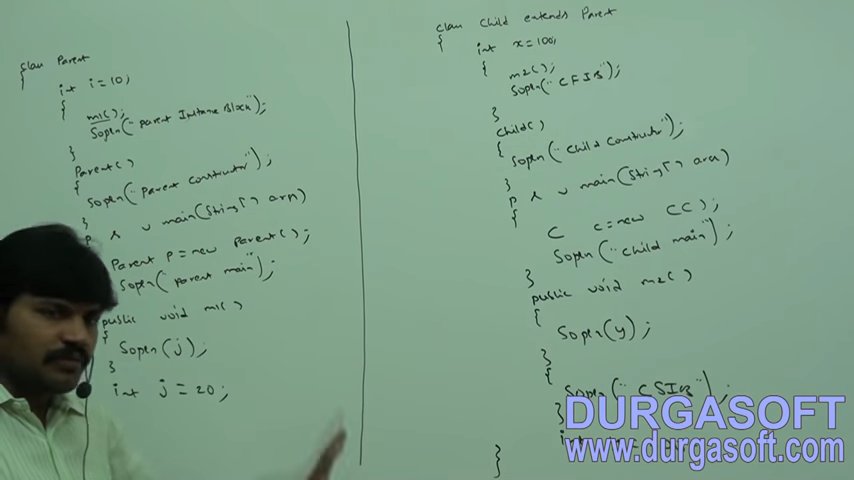 class Parent
{
int i=10;
{
m1();
Sopln("parent Instance Block");
}
Parent()
{
Sopln("parent constructor");
}
p s v main(String[] args)
Parent p=new parent();
Sopln("parent main");
public void m1()
{
Sopln(j);
}
int j = 20;
class Child extends Parent
{
int x=100;
{
m2();
Sopln("CFIB");
}
child()
{
Sopln("child constructor");
}
p s v main(String[] args)
{
C c=new CC);
Sopln("child main");
}
public void m2()
{
Sopln(y);
}
{
Sopln("CSIB");
}
int
}
DURGASOFT
www.durgasoft.com